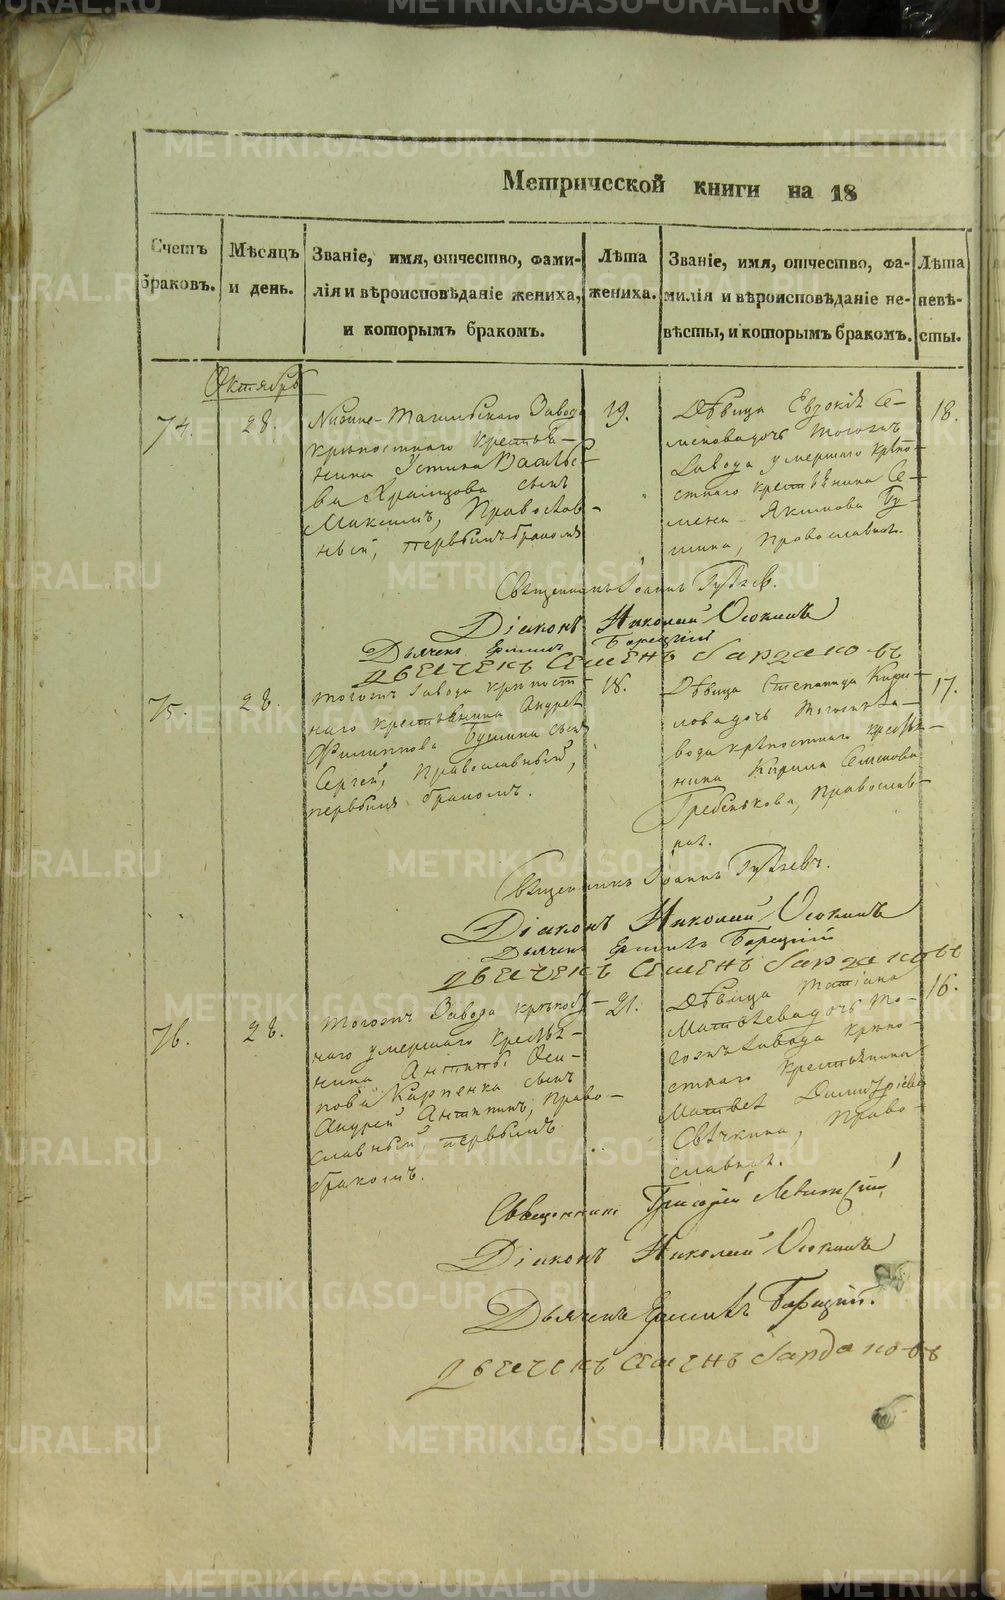 Метрической книги на 18
Счетъ браковъ.
Мѣсяцъ и день.
Званіе, имя, отчество, фами-
лія и вѣроисповѣданіе жениха,
и которымъ бракомъ.
Лѣта
жениха.
Званіе, имя, отчество, фа-
милія и вѣроисповѣданіе не-
вѣсты, и которымъ бракомъ.
Лѣта
невѣ-
сты.
Октябрь
74.
28.
Нижне-Тагильскаго Завода
крѣпостнаго крестья-
нина Устина Василье-
ва Храмцова сынъ
Максимъ, Православ-
ный, первымъ бракомъ
19.
Дѣвица Евдокія Се-
менова дочь тогожъ
Завода умершаго крѣпо-
стнаго крестьянина Се-
мена Якимова Бу-
шина, Православная.
18.
Священникъ Іоаннъ
Діаконъ Николай Осокинъ
Дьячекъ Ермилъ Борецкій
Двечекъ Семенъ
75.
28.
тогожъ Завода крѣпост-
наго крестьянина Андрея
Филиппова Бушина сынъ
Сергей, Православный,
первымъ бракомъ.
18.
Дѣвица Степанида Кири-
лова дочь тогожъ За-
вода крѣпостнаго крестья-
нина Кирила Семенова
Гребенькова, Православ-
ная.
17.
Священникъ Іоаннъ
Діаконъ Николай Осокинъ
Дьячекъ Ермилъ Борецкій
Двечекъ Семенъ
76.
28.
тогожъ Завода крѣпост-
наго умершаго крестья-
нина Антипы Оси-
пова Карпенка сынъ
Андрей Антипинъ, Право-
славный, первымъ
бракомъ.
21.
Дѣвица Татіана
Матвѣева дочь то-
гожъ Завода крѣпо-
стнаго крестьянина
Матвея Димитріева
Свѣчкина, Право-
славная.
16.
Священникъ Григорій Левитскій
Діаконъ Николай Осокинъ
Дьячекъ Ермилъ Борецкій.
Двечекъ Семенъ
METRIKI.GASO-URAL.RU